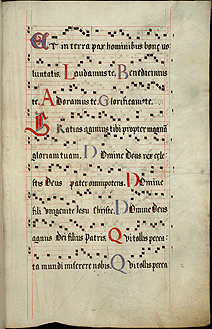 ET in terra pax hominibus bone uo
luntatis. Laudamus te. Benedicimus
te. Adoramus te. Glorificamus te.
Gratias agimus tibi propter magna
gloriam tuam. Domine Deus rex cele
stis Deus pater omnipotens. Domine
fili unigenite Iesu christe. Domine Deus
agnus Dei filius Patris. Qui tollis pecca
ta mundi miserere nobis. Qui tollis pecca